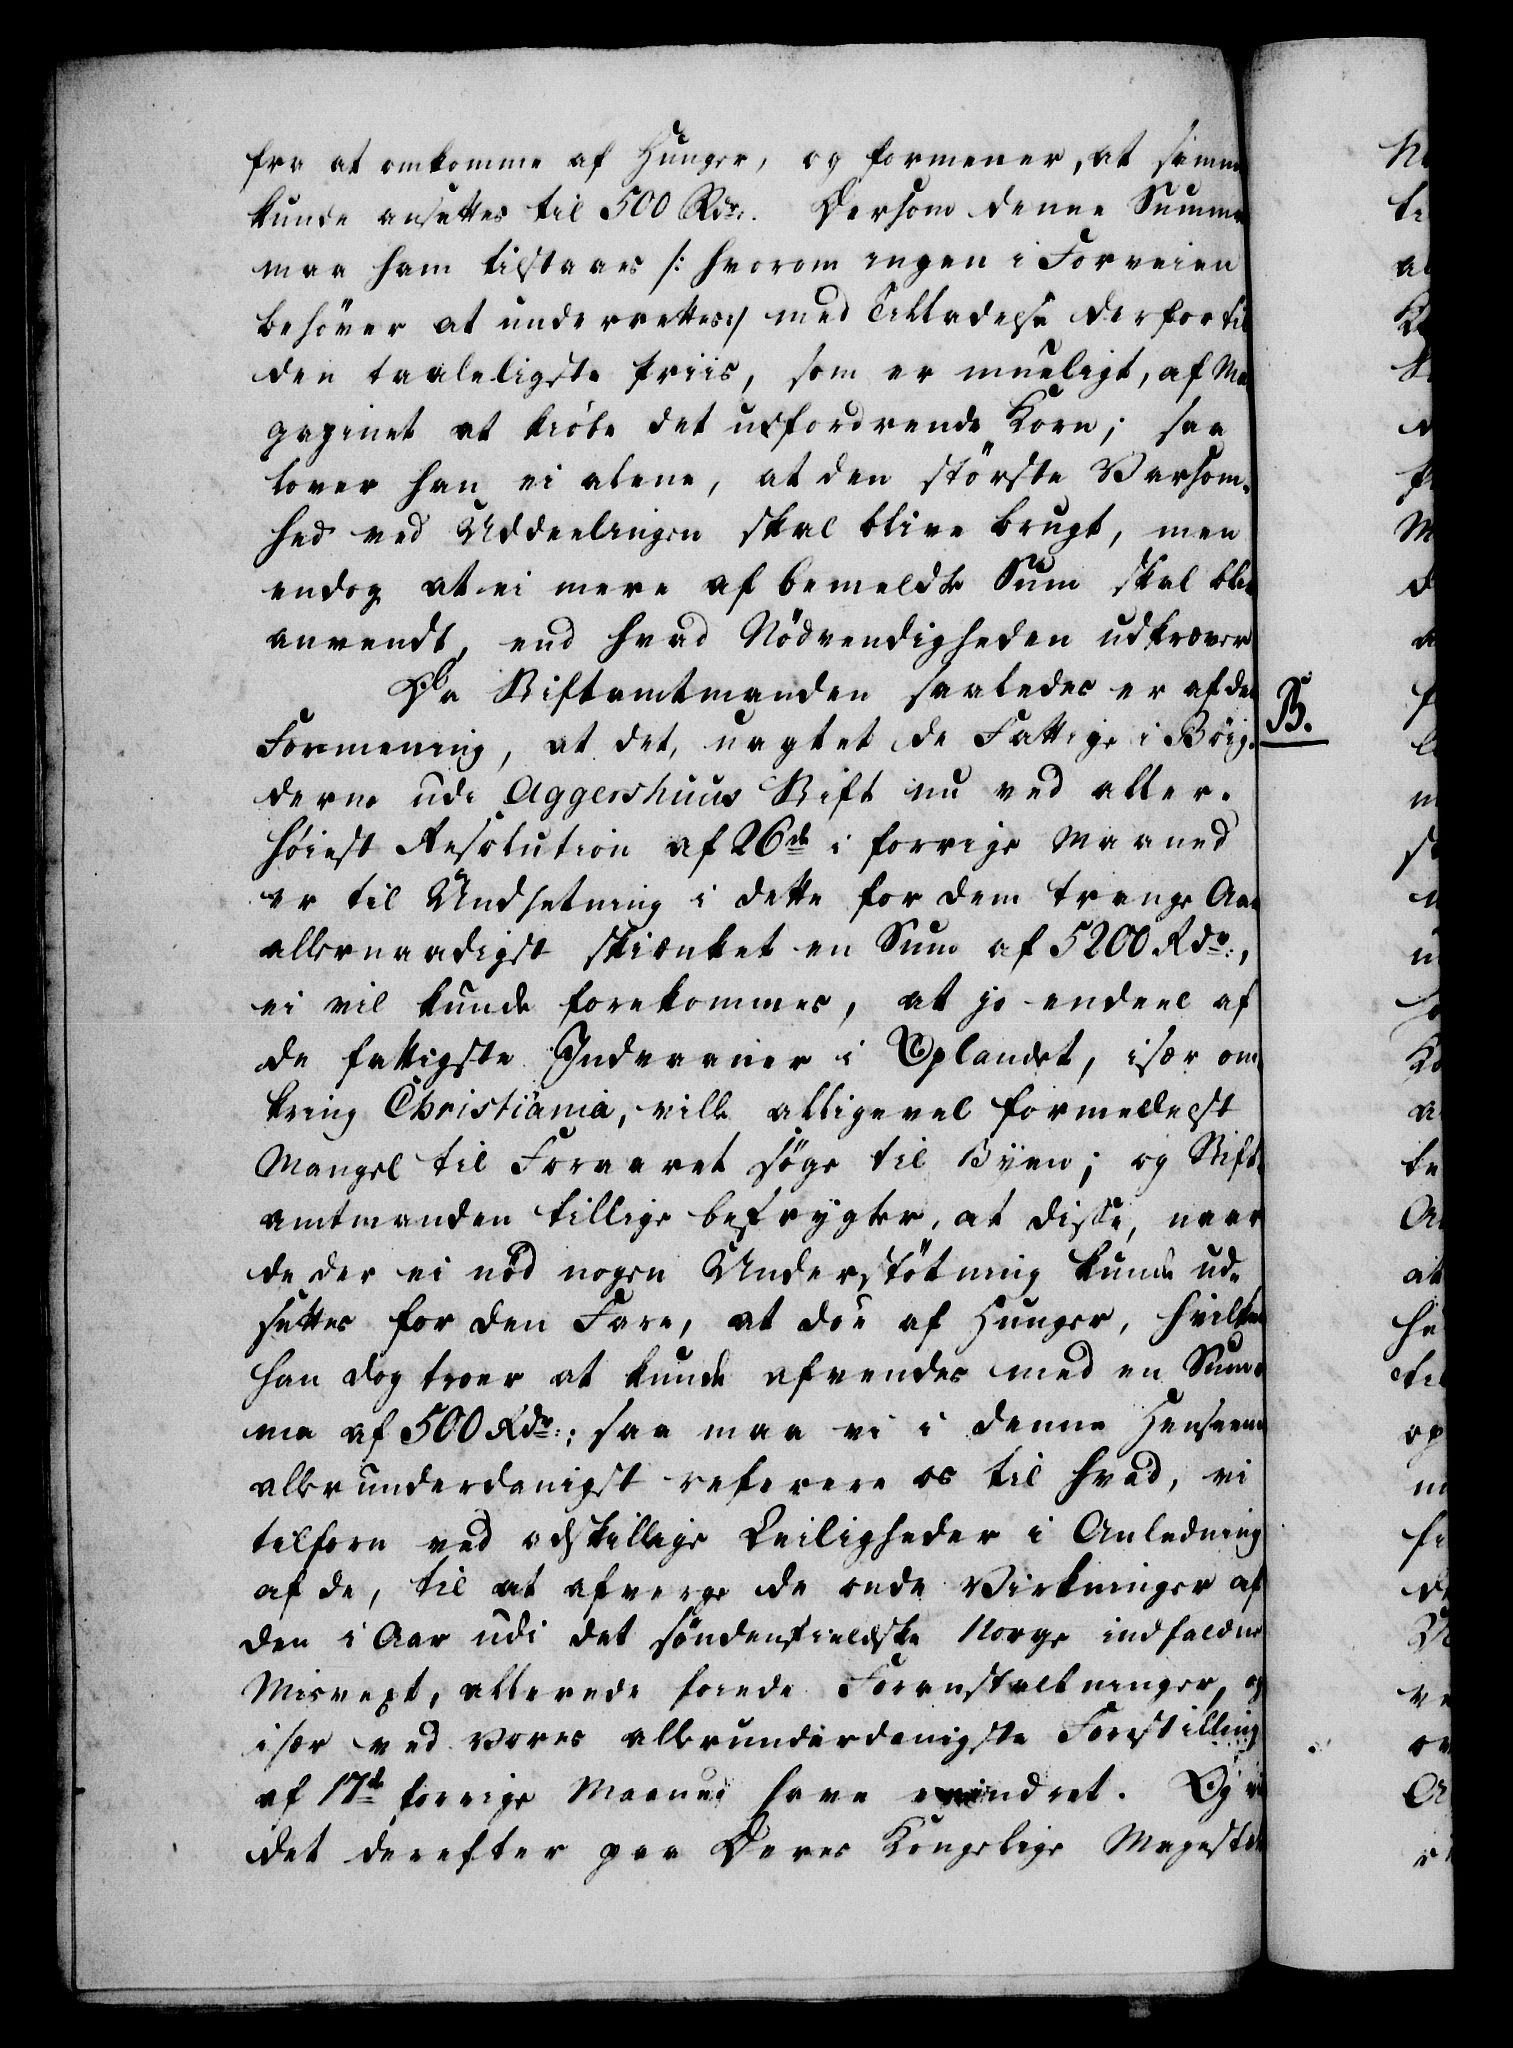 fra at omkomme af Hunger, og formener, at samme
kunde ansættes til 500 Rdr. Dersom denne Summa
maa ham tilstaaes /: hvorom ingen i Forveien
behöver at underrettes:/ med Tilladelse derfor til
den taaleligste Priis, som er mueligt, af Ma
gazinet at kiöbe det udfordrende Korn; saa
lover han ei alene, at den störste Varsom-
hed ved Uddeelingen skal blive brugt, men
endog at ei mere af bemeldte Sum skal blive
anvendt, end hvad Nödvendigheden udkræver
Da Stiftamtmanden saaledes er af den
B.
Formening, at det, uagtet de Fattige i Böig-
derne udi Aggershuus Stift nu ved aller-
höiest Resolution af 26de i forrige Maaned
er til Undsetning i dette for dem trange Aar
allernaadigst skiænket en Sum af 5200 Rdr.,
ei vil kunde forekommes, at jo endeel af
de fattigste Indvaaner i Oplandet, især om-
kring Christiania, ville alligevel formedelst
Mangel til Foraaret söge til Byen; og Stift-
amtmanden tillige befrygter, at disse, naar
de der ei nöd nogen Understötning kunde ud-
sættes for den Fare, at döe af Hunger, hvilket
han dog troer at kunde afvendes med en Sum-
ma af 500 Rdr.; saa maa vi i denne Henseende
allerunderdanigst referere os til hvad, vi
tilforn ved adskillige Leiligheder i Anledning
af de, til at afverge de onde Virkninger af
den i Aar udi det söndenfieldske Norge indfaldne
Misvext, allerede föiede Foranstaltninger, og
især ved vores allerunderdanigste Forestilling
af 17de forrige Maaned have erindret. Og vi
det derefter paa Deres Kongelige Magestets